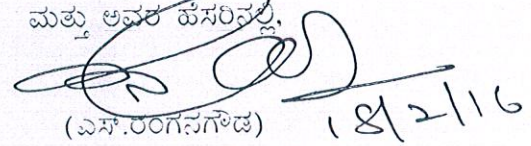 ಮತ್ತು ಅವರ ಹೆಸರಿನಲ್ಲಿ,
(ಎಸ್.ರಂಗನಗೌಡ) 18/2/16